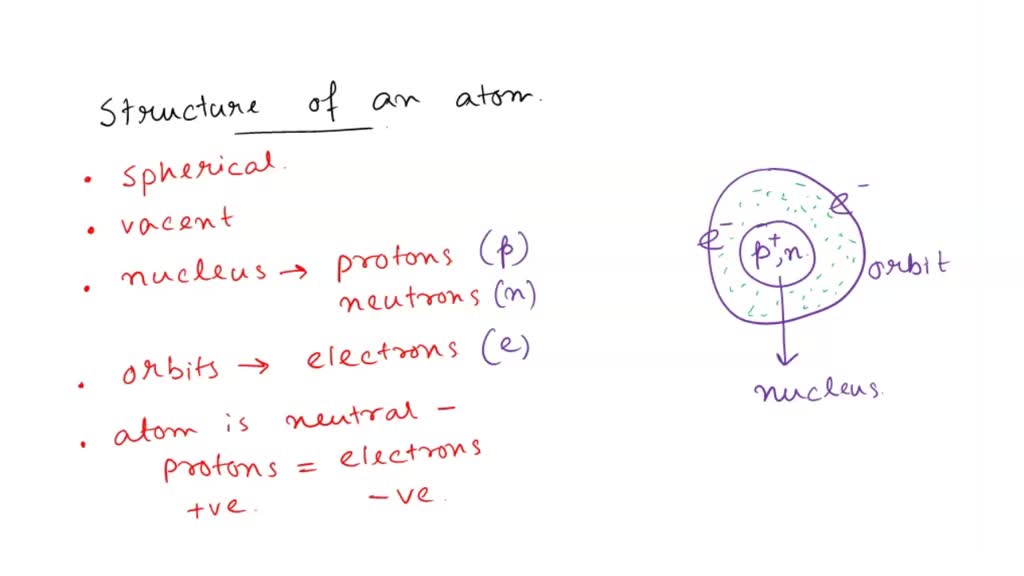 Structure of an atom.
• spherical.
• vacent
• nucleus → protons (p)
neutrons (n)
• orbits → electrons (e)
• atom is neutral –
protons = electrons
+ve. –ve.
e⁻
e⁻
p⁺, n
orbit
nucleus.